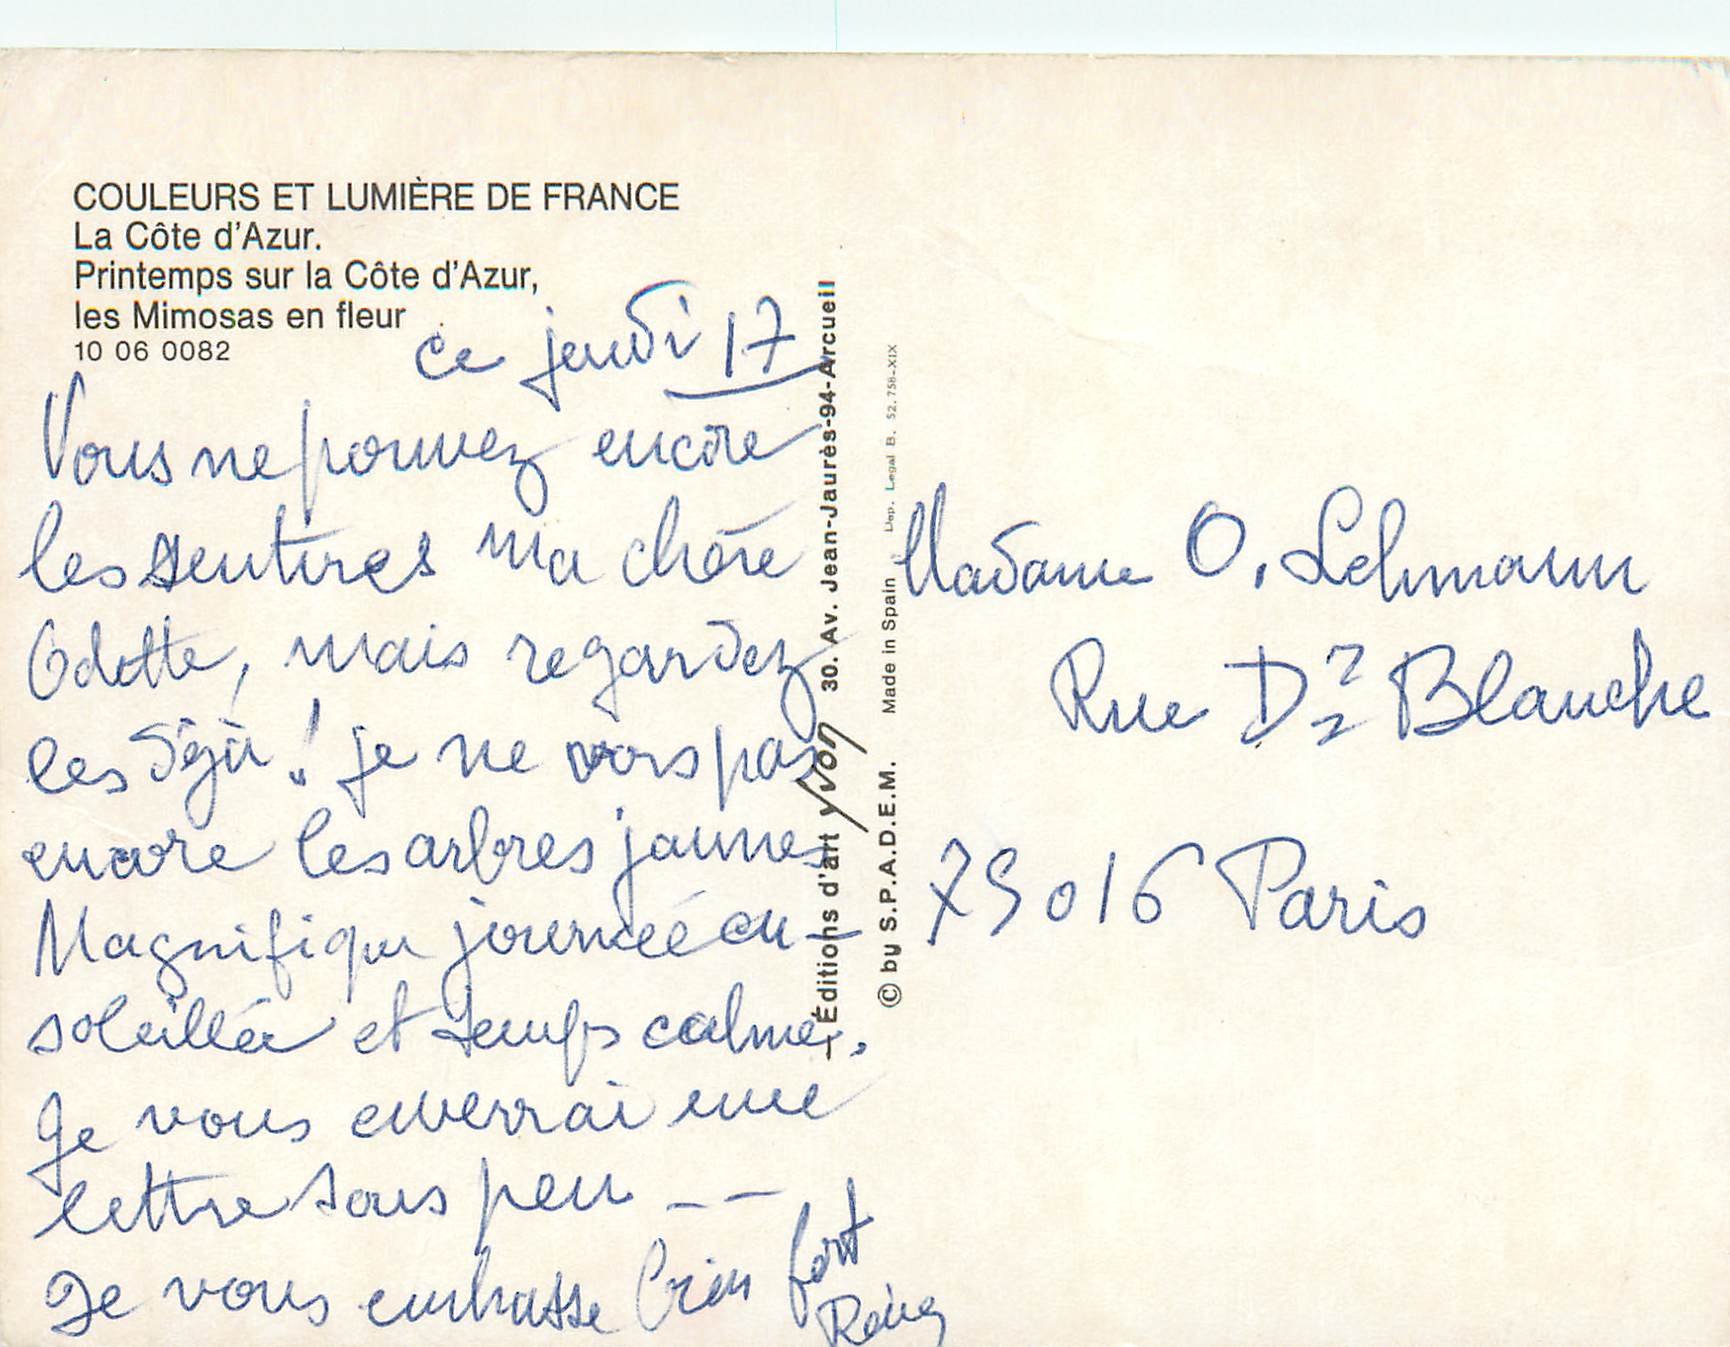 COULEURS ET LUMIÈRE DE FRANCE
La Côte d'Azur.
Printemps sur la Côte d'Azur,
les Mimosas en fleur
10 06 0082
ce jeudi 17
Vous ne pouvez encore
les sentires ma chère
Odette, mais regardez
les déjà ! je ne vois pas
encore les arbres jaunes
Magnifique journéé en-
soleillée et temps calme.
Je vous enverrai une
lettre sous peu - -
Je vous embrasse bien fort
— Éditions d'art yvon 30. Av. Jean-Jaurès-94-Arcueil
© by S.P.A.D.E.M. Made in Spain Dep. Legal B. 52.758-XIX
Madame O. Lehmann
Rue Dr Blanche
75016 Paris